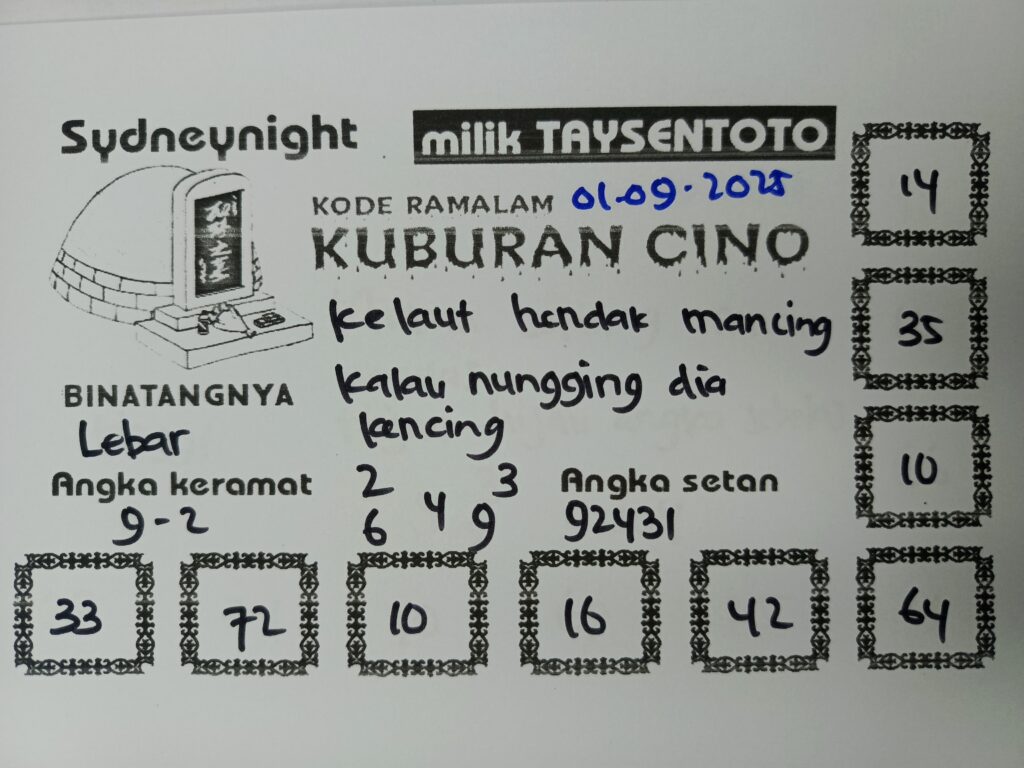 Sydneynight
milik TAYSENTOTO
KODE RAMALAM 01-09-2025
KUBURAN CINO
kelaut hendak mancing
kalau nungging dia
kencing
BINATANGNYA
Lebar
Angka keramat
9-2
2 3
4
6 9
Angka setan
92431
14
35
10
33 72 10 16 42 64